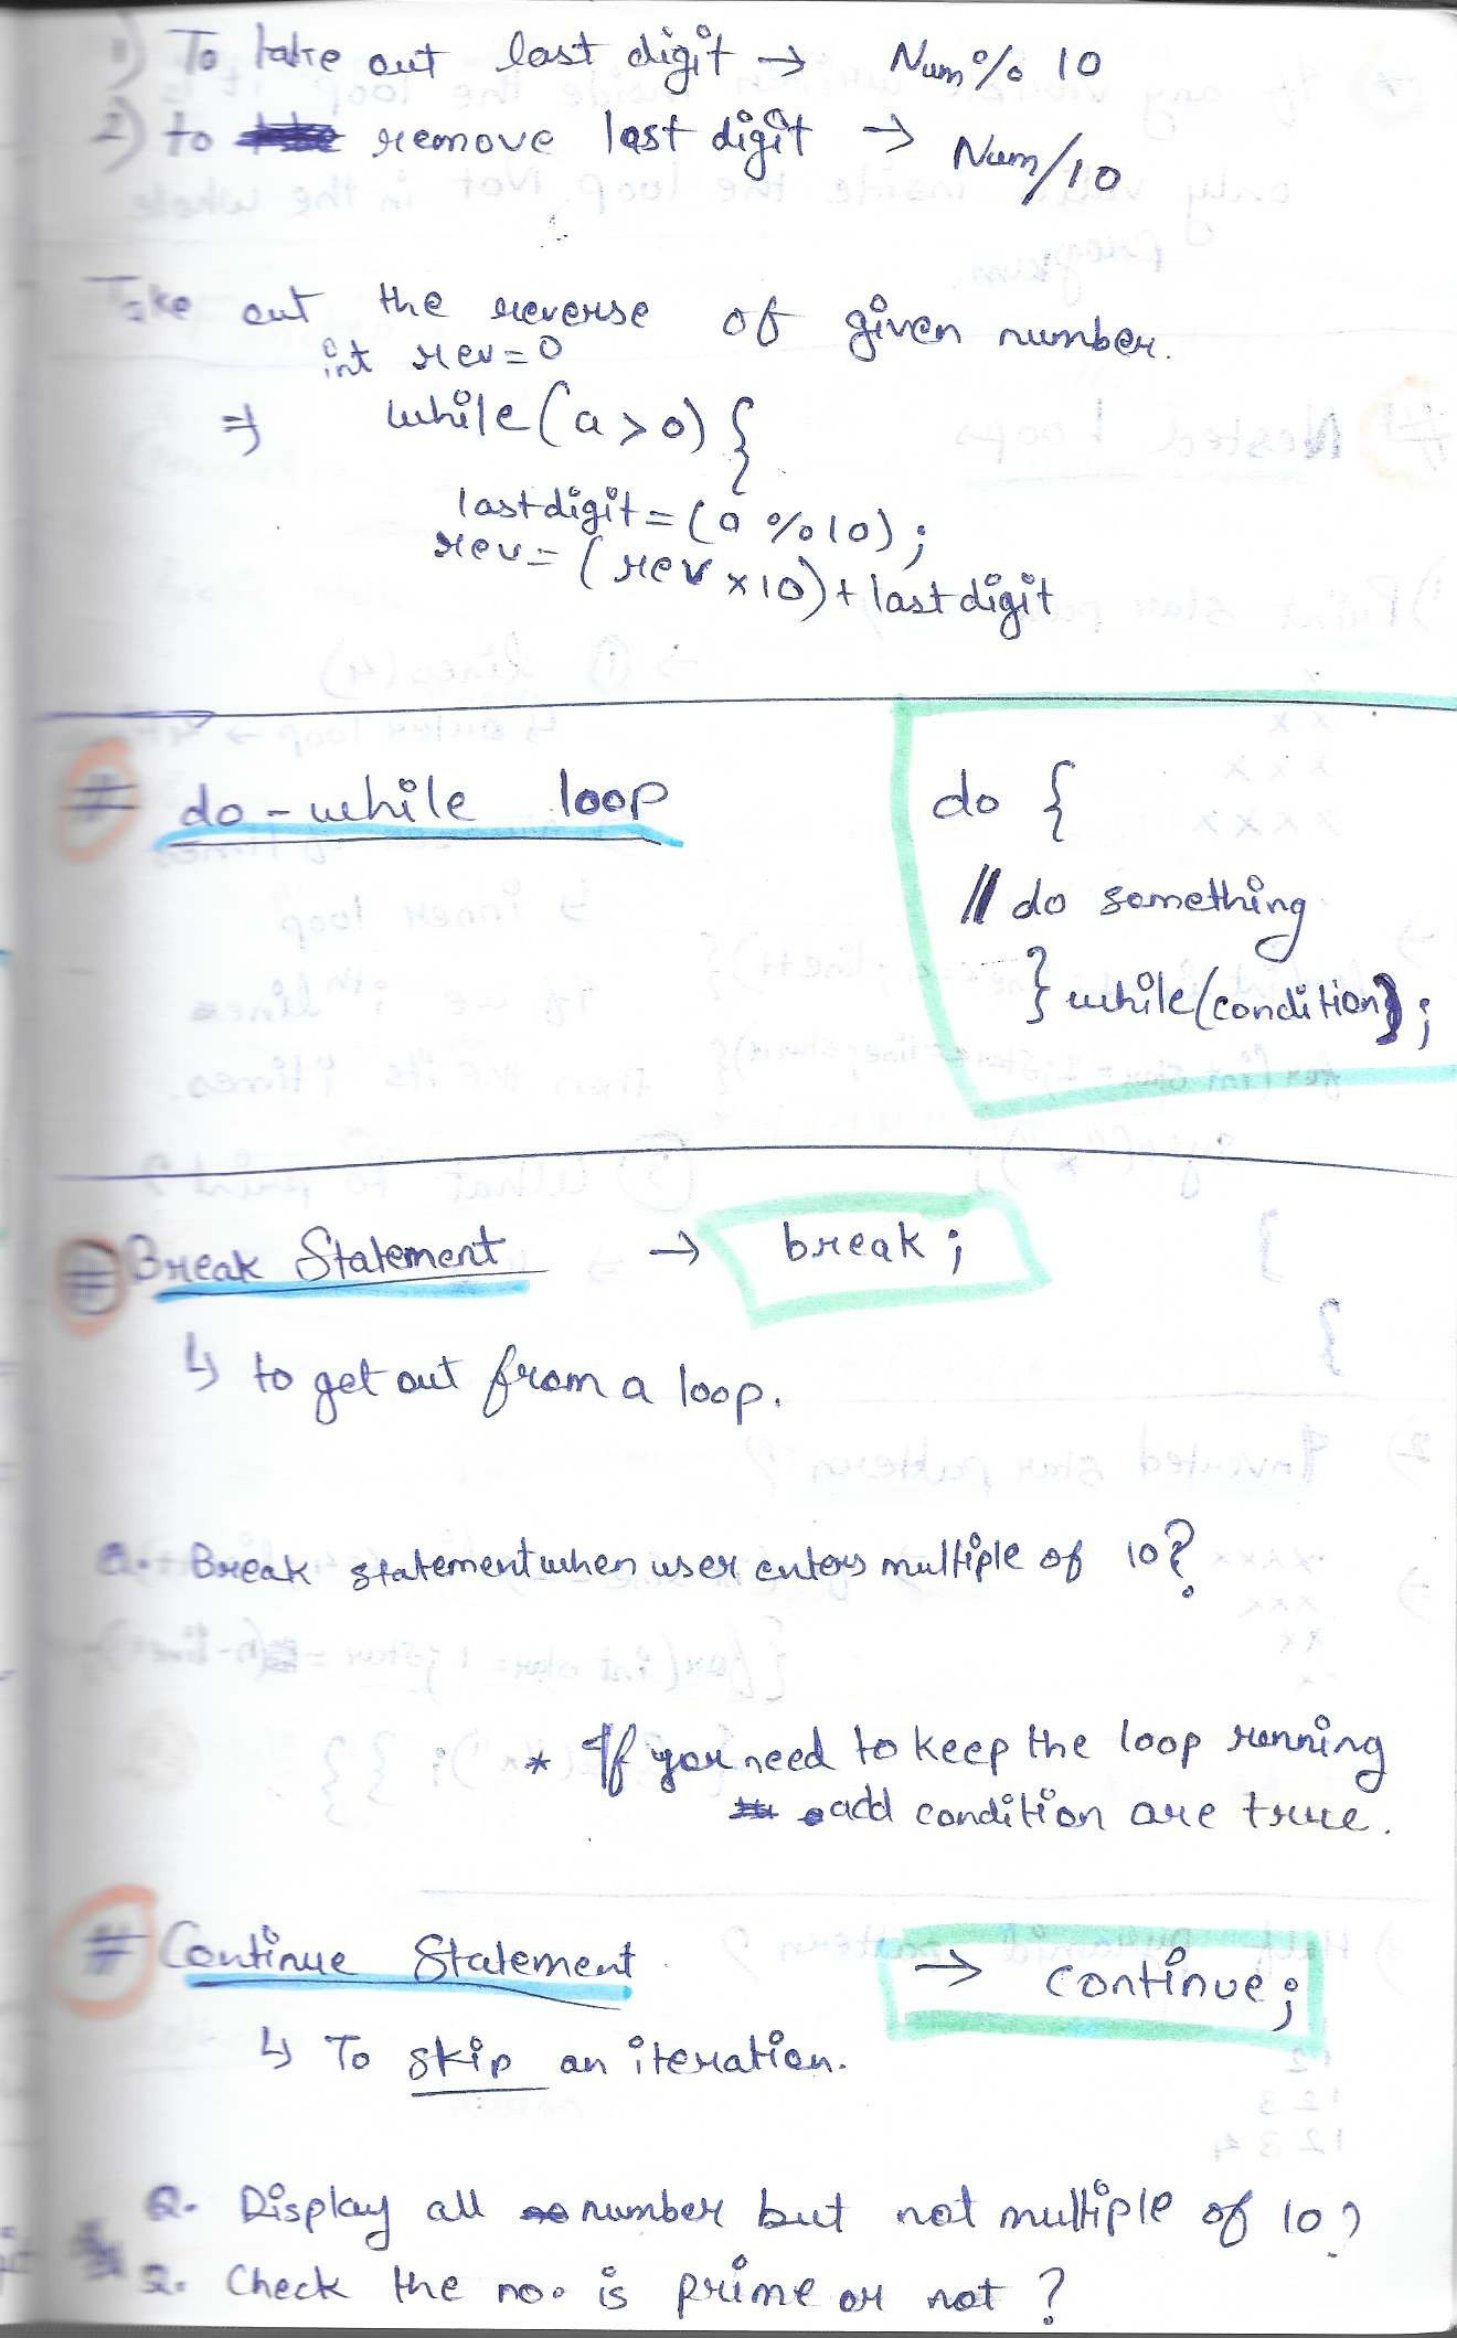 1) To take out last digit → Num % 10
2) to remove last digit → Num/10
Take out the reverse of given number.
int rev=0
⇒ while(a>0){
lastdigit=(a %10);
rev=(rev×10)+lastdigit
# do-while loop
do {
// do something
} while(condition);
# Break Statement → break;
↳ to get out from a loop.
Q. Break statement when user enters multiple of 10?
* If you need to keep the loop running
add condition are true.
# Continue Statement → continue;
↳ To skip an iteration.
Q. Display all number but not multiple of 10?
Q. Check the no. is prime or not?